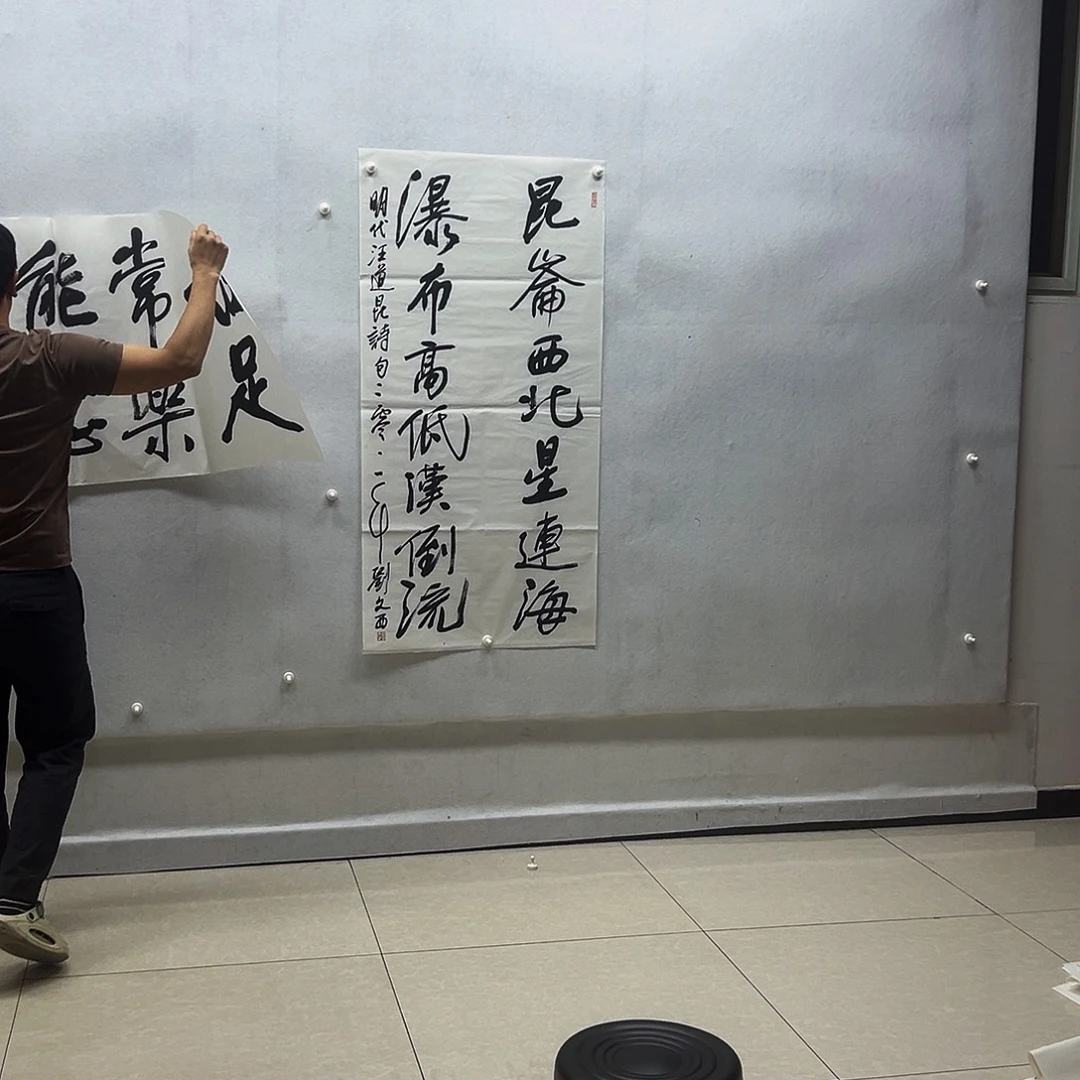 昆崙西北星連海
瀑布高低漢倒流
明代汪道昆詩句二零一一年劉文西
足
常樂
能